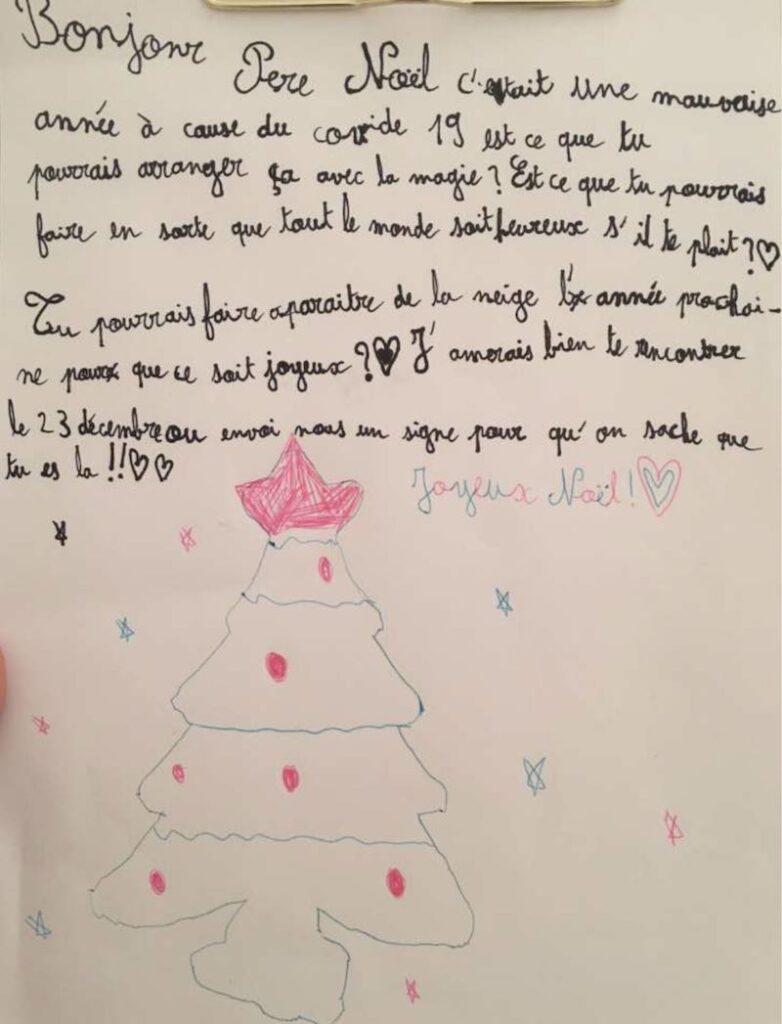 Bonjour
Père Noël c'était une mauvaise
année à cause du covide 19 est ce que tu
pourrais arranger ça avec la magie ? Est ce que tu pourrais
faire en sorte que tout le monde soit heureux s'il te plait ? ♡
Tu pourrais faire aparaitre de la neige l' année prochai-
ne pour que ce soit joyeux ? ♥ J'amerais bien te rencontrer
le 23 décembre ou envoi nous un signe pour qu'on sache que
tu es la !! ♡♡
Joyeux Noël ! ♡